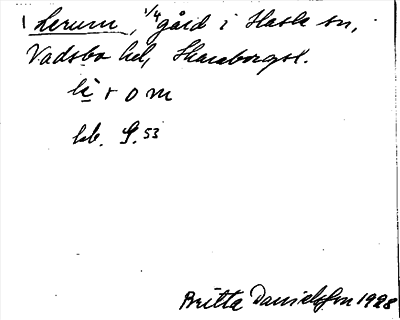 Lerum, 1/4 gård i Hassle sn,
Vadsbo hd, Skaraborgsl.
lirom
hb. S. 53
Britta Danielsson 1928